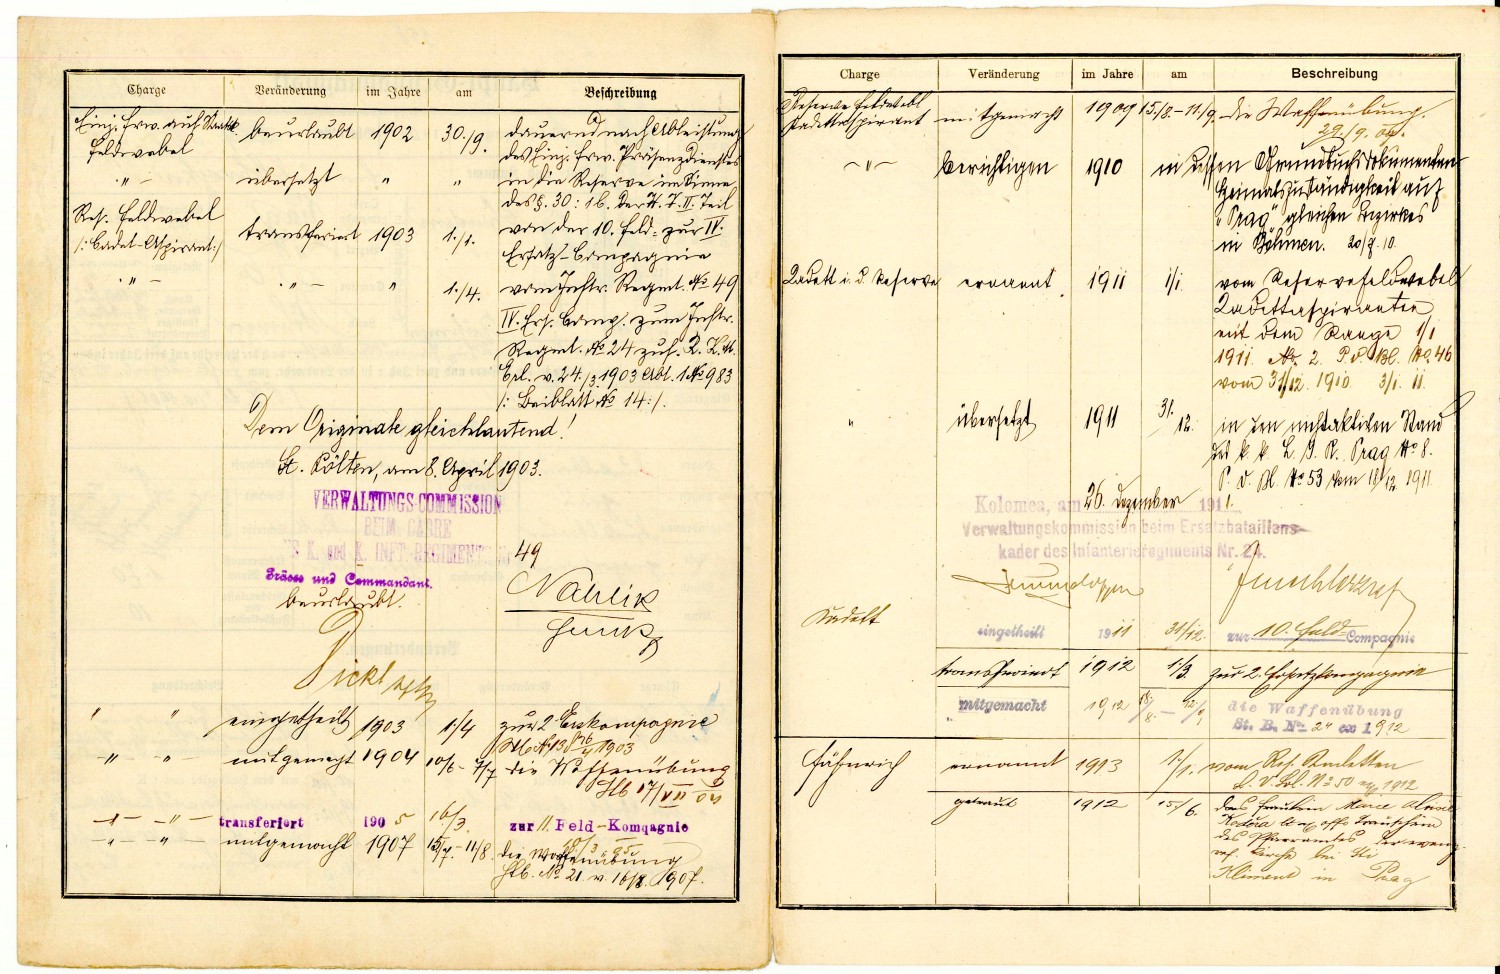 Charge Veränderung im Jahre am Beschreibung
Einj. Frw. auf Staatsk. beurlaubt 1902 30./9. dauernd nach Ableistung
Feldwebel des Einj. Frw. Präsenzdienstes
" übersetzt " " in die Reserve im Sinne
des §. 30: 16. der W. V. II. Teil
Res. Feldwebel transferiert 1903 1./1. von der 10. Feld- zur IV.
/: Cadet-Aspirant :/ Ersatz-Compagnie
" " " 1./4. vom Inftr. Regmt. № 49
IV. Ers. Comp. zum Inftr.
Regmt. № 24 zuf. R. K. M.
Erl. v. 24./3. 1903 Abt. 1 № 983
/: Beiblatt № 14 :/.
Dem Originale gleichlautend!
St. Pölten, am 8. April 1903.
VERWALTUNGS-COMMISSION
BEIM CADRE
K. und K. INFT-REGIMENT 49
Präses und Commandant.
beurlaubt.
" " eingetheilt 1903 1./4 zur 2. Erskompagnie
1903
" " mitgemacht 1904 10/6 - 7/7 die Waffenübung
Stb 17/VII 04
" " transferiert 1905 16/3. zur 11. Feld-Kompagnie
" " mitgemacht 1907 15/7. - 11/8. die Waffenübung
Stb. № 21 v. 16/8. 1907.
Charge Veränderung im Jahre am Beschreibung
Reserve Feldwebel mitgemacht 1909 15./8. - 11./9. die Waffenübung.
Kadettaspirant 29./9. 09.
" berichtigen 1910 in dessen Grundbuchsdokumenten
Heimatszuständigkeit auf
"Prag" gleichen Bezirkes
in Böhmen. 20/9. 10.
Kadett i. d. Reserve ernannt 1911 1/1. vom Reservefeldwebel
Kadettaspiranten
mit dem Range 1/1
1911. № 2. P. V. Bl. № 46
vom 31/12. 1910. 3/1. 11.
" übersetzt 1911 31. 12. in den nichtaktiven Stand
des k. k. L. I. R. Prag № 8.
P. V. Bl. № 53 vom 1911
Kolomea, am 26. Dezember 1911.
Verwaltungskommission beim Ersatzbataillons-
kader des Infanterieregiments Nr. 24.
Kadett eingetheilt 1911 31/12. zur 10. Feld-Compagnie
transferiert 1912 1./3. zur 2. Ersatzkompagnie
mitgemacht 1912 die Waffenübung
St. B. No. 24 ex 1912
Fähnrich ernannt 1913 1./1. vom Res. Kadetten
P. V. Bl. № 50 ex 1912
getraut 1912 15/6. das Fräulein Marie
des Pfarramtes der evang.
ref. Kirche bei St.
Kliment in Prag